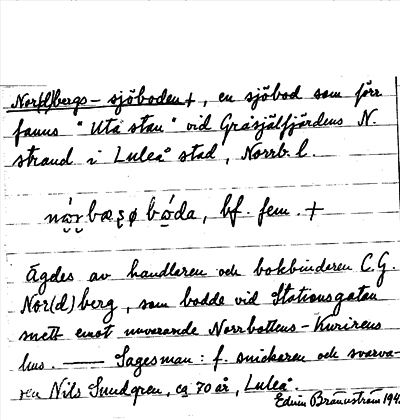 Nor(d)bergs-sjöboden +, en sjöbod som förr
fanns "Uta stan" vid Gråsjälfjärdens N.
strand i Luleå stad, Norrb. l.
bf. fem. +
Ägdes av handlaren och bokbinderen C.G.
Nor(d)berg, som bodde vid Stationsgatan
snett emot nuvarande Norrbottens-Kurirens
hus. — Sagesman: f. snickaren och svarva-
ren Nils Sundgren, ca 70 år, Luleå.
Edvin Brännström 194